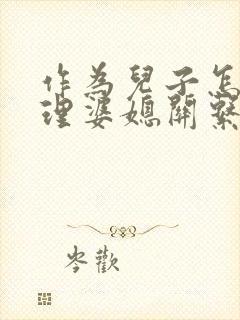 作為兒子怎
理婆媳關繫
岑歡